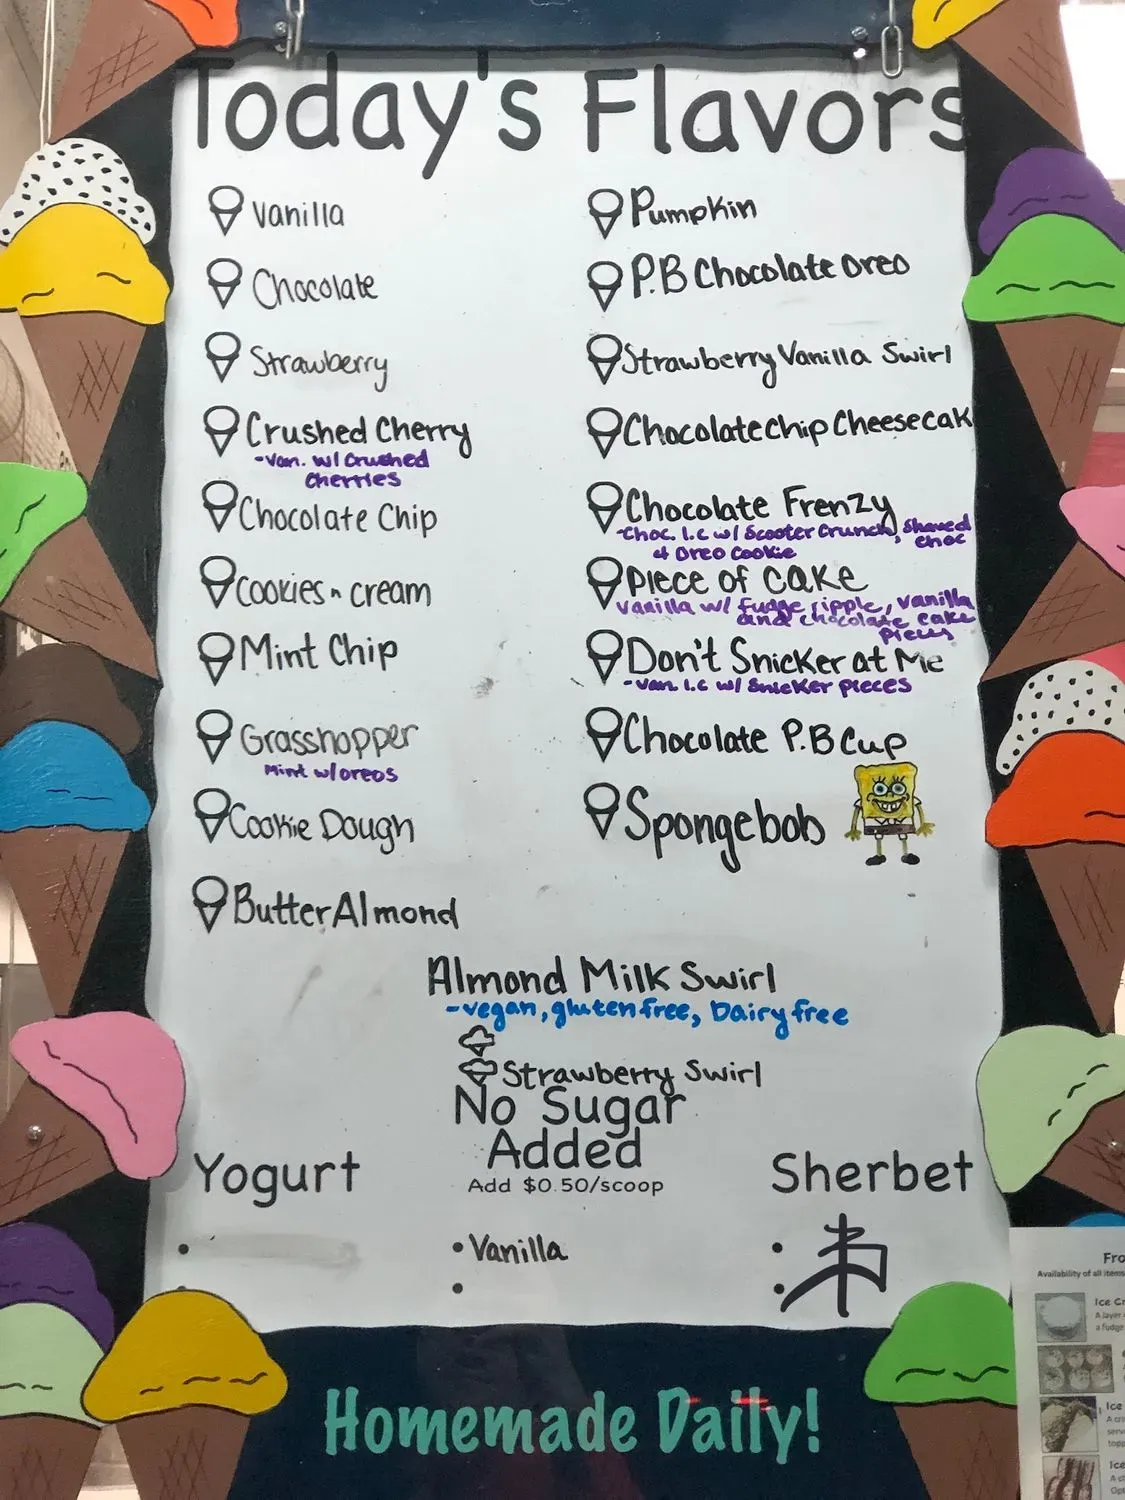 Today's Flavors
Vanilla
Chocolate
Strawberry
Crushed Cherry
-Van. w/ Crushed
Cherries
Chocolate Chip
Cookies n cream
Mint Chip
Grasshopper
Mint w/oreos
Cookie Dough
Butter Almond
Pumpkin
P.B Chocolate Oreo
Strawberry Vanilla Swirl
Chocolate Chip Cheesecak
Chocolate Frenzy
-Choc. I.C w/ Scooter Crunch, Shaved
choc
& Oreo Cookie
Piece of Cake
Vanilla w/ fudge ripple, vanilla
and chocolate cake
pieces
Don't Snicker at Me
-Van. I.C w/ Snicker Pieces
Chocolate P.B Cup
Spongebob
Almond Milk Swirl
-vegan, gluten free, Dairy free
Strawberry Swirl
No Sugar
Added
Add $0.50/scoop
• Vanilla
Yogurt
Sherbet
Homemade Daily!
Fro
Availability of all items
Ice Cr
A layer
a fudge
Ice
serv
topp
Ice